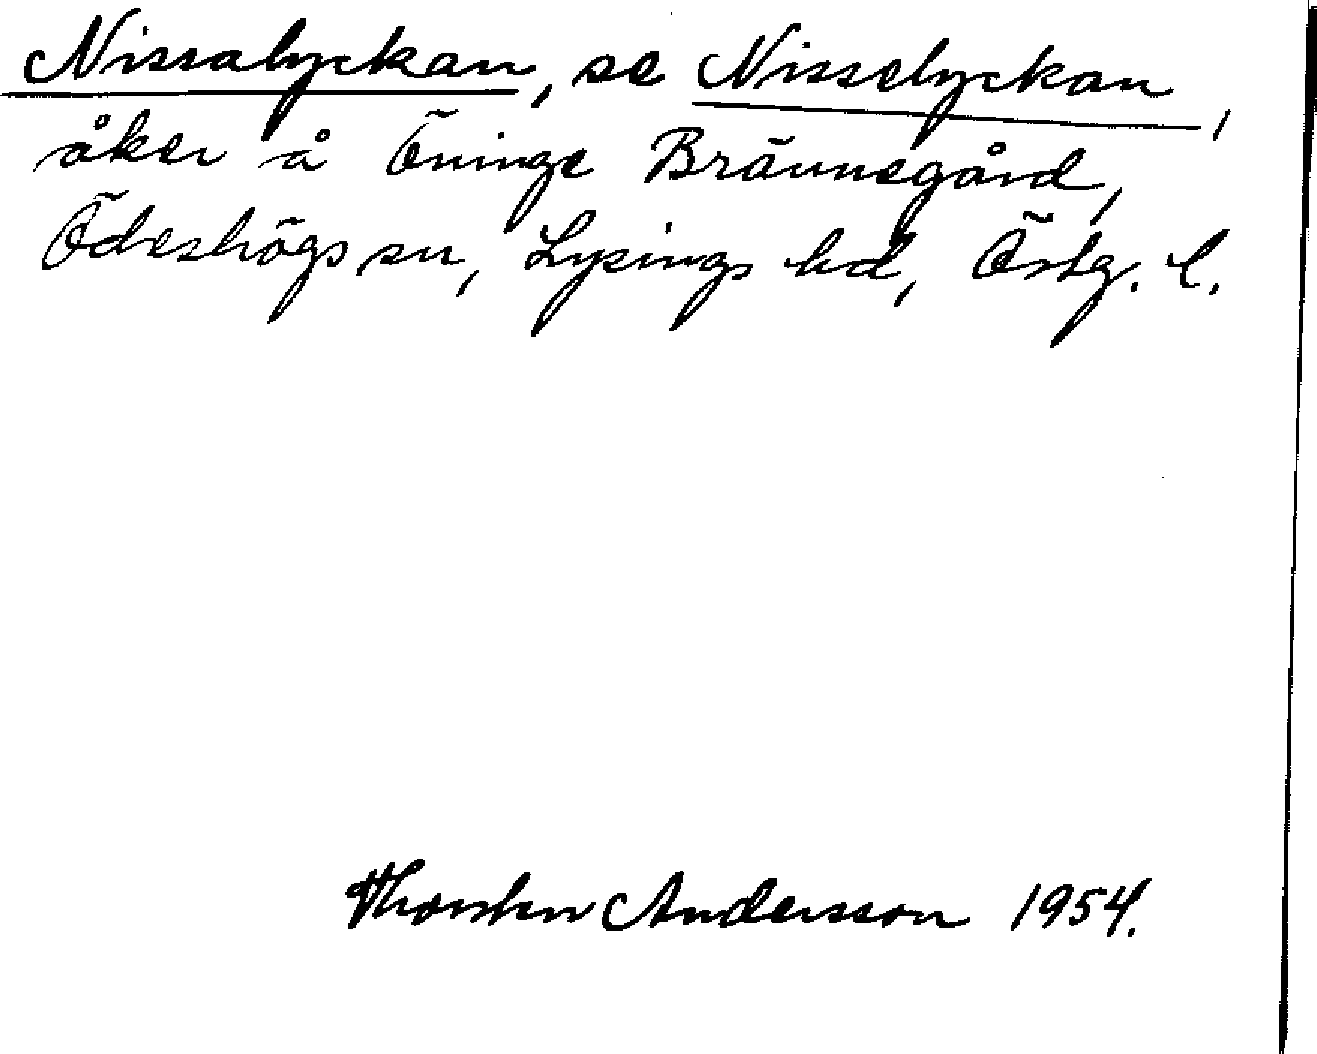 Nissalyckan, se Nisselyckan,
åker å Öninge Brännegård,
Ödeshögs sn, Lysings hd, Östg. l.
Thorsten Andersson 1954.